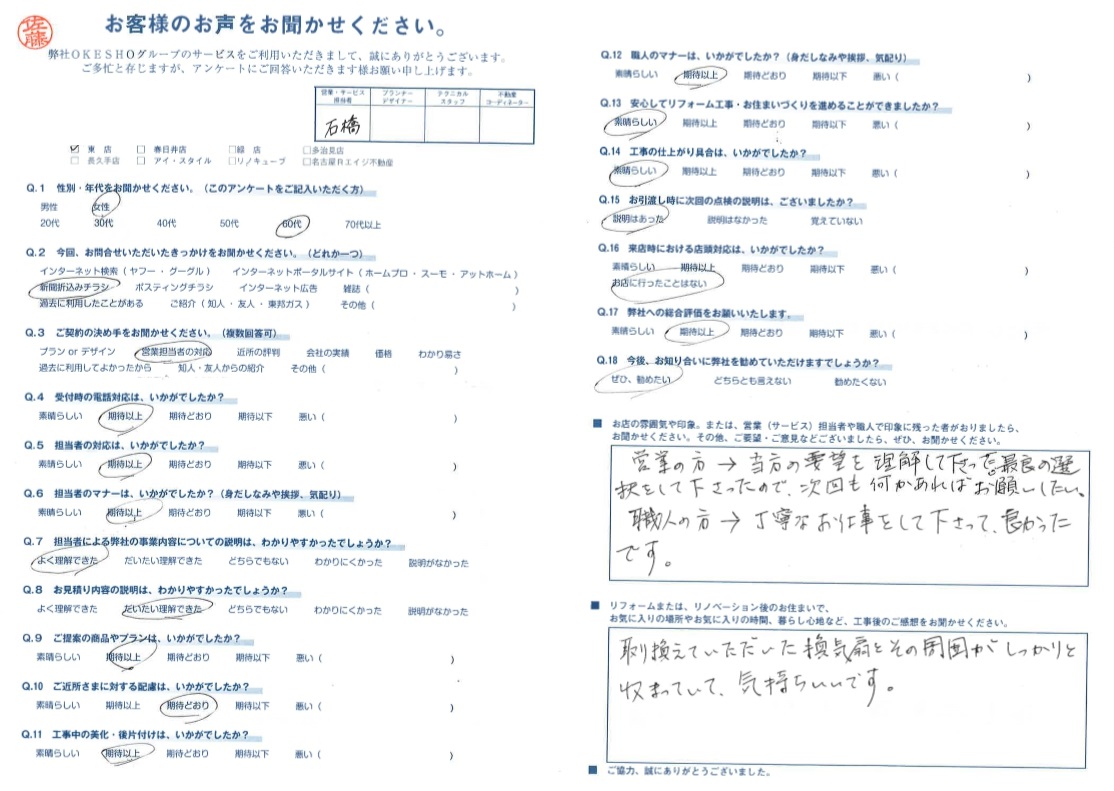 佐藤
お客様のお声をお聞かせください。
弊社OKESHOグループのサービスをご利用いただきまして、誠にありがとうございます。
ご多忙と存じますが、アンケートにご回答いただきます様お願い申し上げます。
営業・サービス担当者 プランナーデザイナー テクニカルスタッフ 不動産コーディネーター
石橋
☑ 東 店 □ 春日井店 □緑 店 □多治見店
□ 長久手店 □ アイ・スタイル □リノキューブ □名古屋Rエイジ不動産
Q.1 性別・年代をお聞かせください。（このアンケートをご記入いただく方）
男性 女性
20代 30代 40代 50代 60代 70代以上
Q.2 今回、お問合せいただいたきっかけをお聞かせください。（どれか一つ）
インターネット検索（ ヤフー ・ グーグル ） インターネットポータルサイト（ ホームプロ ・ スーモ ・ アットホーム ）
新聞折込みチラシ ポスティングチラシ インターネット広告 雑誌（ ）
過去に利用したことがある ご紹介（ 知人 ・ 友人 ・ 東邦ガス ） その他（ ）
Q.3 ご契約の決め手をお聞かせください。（複数回答可）
プラン or デザイン 営業担当者の対応 近所の評判 会社の実績 価格 わかり易さ
過去に利用してよかったから 知人・友人からの紹介 その他（ ）
Q.4 受付時の電話対応は、いかがでしたか？
素晴らしい 期待以上 期待どおり 期待以下 悪い（ ）
Q.5 担当者の対応は、いかがでしたか？
素晴らしい 期待以上 期待どおり 期待以下 悪い（ ）
Q.6 担当者のマナーは、いかがでしたか？（身だしなみや挨拶、気配り）
素晴らしい 期待以上 期待どおり 期待以下 悪い（ ）
Q.7 担当者による弊社の事業内容についての説明は、わかりやすかったでしょうか？
よく理解できた だいたい理解できた どちらでもない わかりにくかった 説明がなかった
Q.8 お見積り内容の説明は、わかりやすかったでしょうか？
よく理解できた だいたい理解できた どちらでもない わかりにくかった 説明がなかった
Q.9 ご提案の商品やプランは、いかがでしたか？
素晴らしい 期待以上 期待どおり 期待以下 悪い（ ）
Q.10 ご近所さまに対する配慮は、いかがでしたか？
素晴らしい 期待以上 期待どおり 期待以下 悪い（ ）
Q.11 工事中の美化・後片付けは、いかがでしたか？
素晴らしい 期待以上 期待どおり 期待以下 悪い（ ）
Q.12 職人のマナーは、いかがでしたか？（身だしなみや挨拶、気配り）
素晴らしい 期待以上 期待どおり 期待以下 悪い（ ）
Q.13 安心してリフォーム工事・お住まいづくりを進めることができましたか？
素晴らしい 期待以上 期待どおり 期待以下 悪い（ ）
Q.14 工事の仕上がり具合は、いかがでしたか？
素晴らしい 期待以上 期待どおり 期待以下 悪い（ ）
Q.15 お引渡し時に次回の点検の説明は、ございましたか？
説明はあった 説明はなかった 覚えていない
Q.16 来店時における店頭対応は、いかがでしたか？
素晴らしい 期待以上 期待どおり 期待以下 悪い（ ）
お店に行ったことはない
Q.17 弊社への総合評価をお願いいたします。
素晴らしい 期待以上 期待どおり 期待以下 悪い（ ）
Q.18 今後、お知り合いに弊社を勧めていただけますでしょうか？
ぜひ、勧めたい どちらとも言えない 勧めたくない
■ お店の雰囲気や印象。または、営業（サービス）担当者や職人で印象に残った者がおりましたら、
お聞かせください。その他、ご要望・ご意見などございましたら、ぜひ、お聞かせください。
営業の方 → 当方の要望を理解して下さって最良の選
択をして下さったので、次回も何かあればお願いしたい。
職人の方 → 丁寧なお仕事をして下さって、良かった
です。
■ リフォームまたは、リノベーション後のお住まいで、
お気に入りの場所やお気に入りの時間、暮らし心地など、工事後のご感想をお聞かせください。
取り換えていただいた換気扇とその周囲がしっかりと
収まっていて、気持ちいいです。
■ ご協力、誠にありがとうございました。